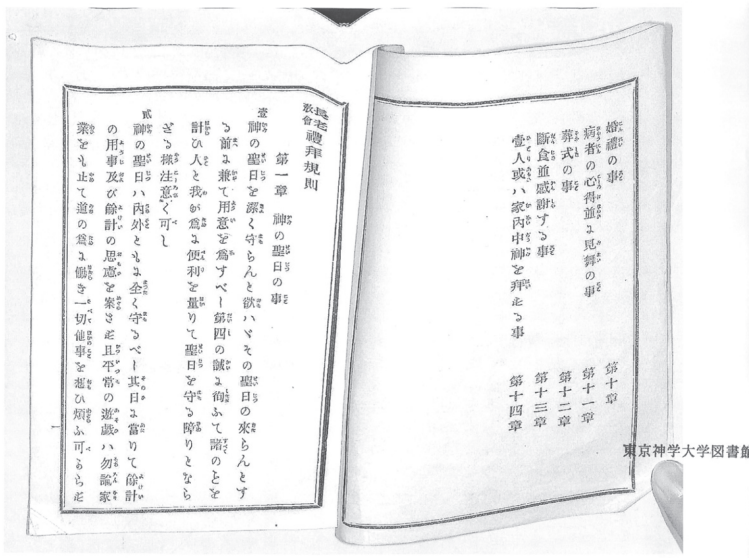 婚禮の事 第十章
病者の心得並ょ見舞の事 第十一章
葬式の事 第十二章
斷食並感謝する事 第十三章
壹人或ハ家內中神を拜する事 第十四章
東京神学大学図書館
長老教會 禮拜規則
第一章 神の聖日の事
壹 神の聖日を深く守らんと欲ハヾその聖日の來らんとす
る前ょ兼て用意を爲すべし第四の誡ょ徇ふて諸のとを
計ひ人と我が爲ょ便利を量りて聖日を守る障りとなら
ざる樣注意く可し
貳 神の聖日ハ內外ともょ全く守るべし其日ょ當りて餘計
の用事及び餘計の思慮を案さず且平常の遊戯ハ勿論家
業をも止て道の爲ょ働き一切他事を想ひ煩ふ可らず